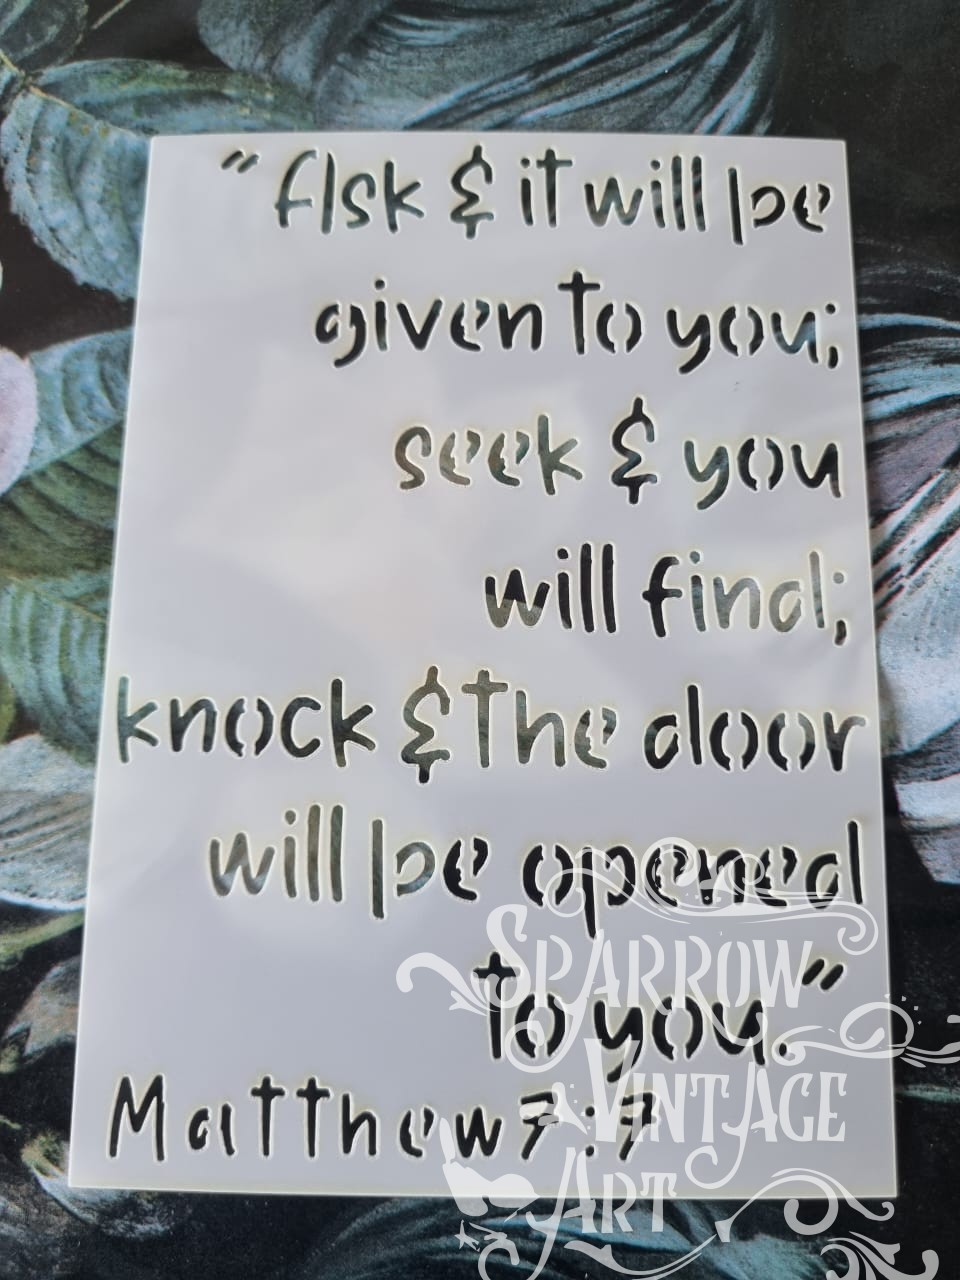 "Ask & it will be
given to you;
seek & you
will find;
knock & the door
will be opened
to you."
Matthew 7:7
SPARROW
VINTAGE
ART